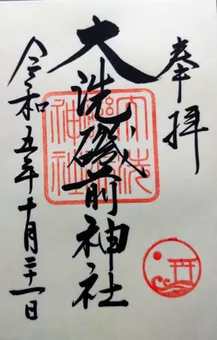 奉拝
大洗磯前神社
令和五年十月二十一日